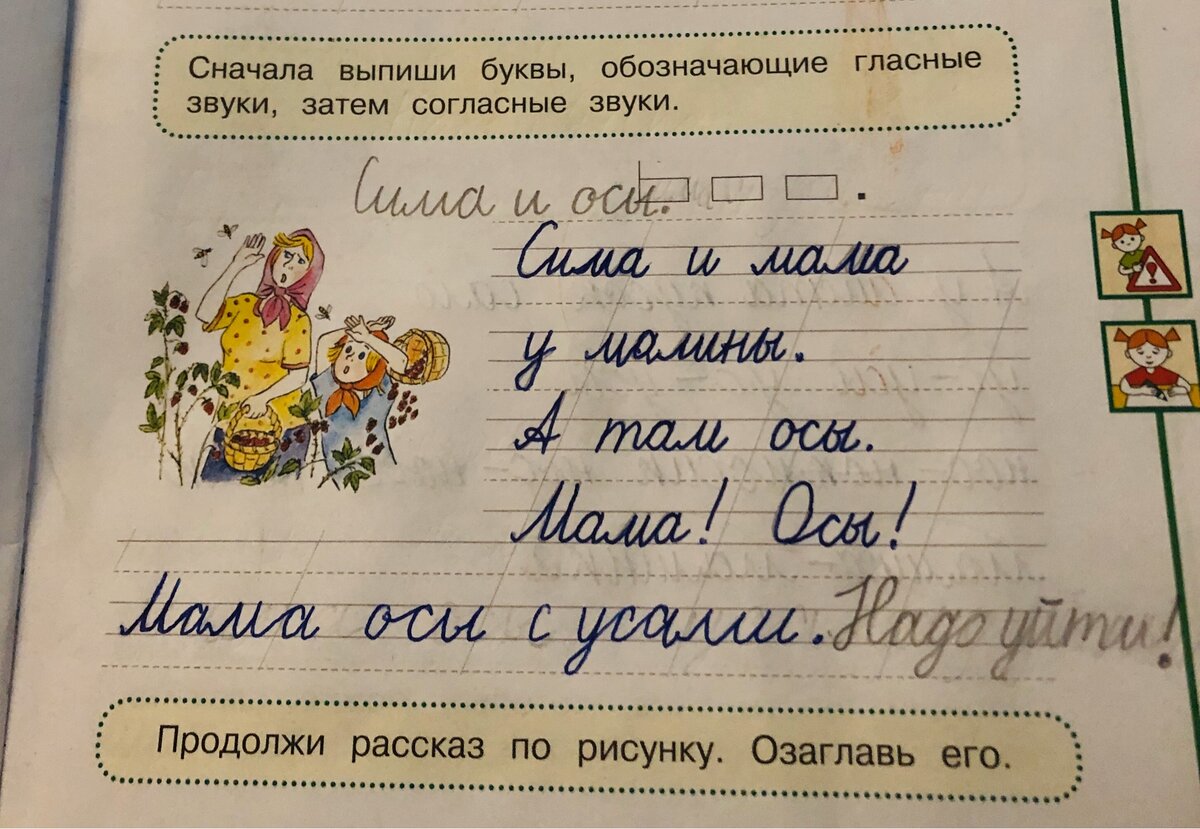 Сначала выпиши буквы, обозначающие гласные
звуки, затем согласные звуки.
Сима и осы.
Сима и мама
у малины.
А там осы.
Мама! Осы!
Мама осы с усами. Надо уйти!
Продолжи рассказ по рисунку. Озаглавь его.